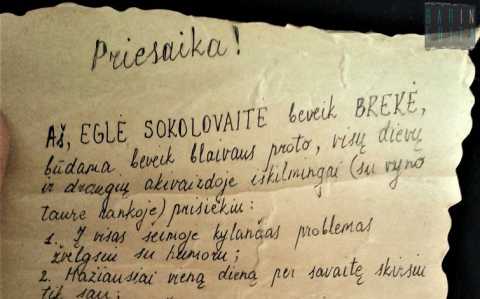 BARIN
Priesaika!
Aš, EGLĖ SOKOLOVAITĖ beveik BREKĖ,
būdama beveik blaivaus proto, visų dievų
ir draugų akivaizdoje iškilmingai (su vyno
taure rankoje) prisiekiu:
1. Į visas šeimoje kylančas problemas
žvelgsiu su humoru;
2. Mažiausiai vieną dieną per savaitę skirsiu
tik sau;